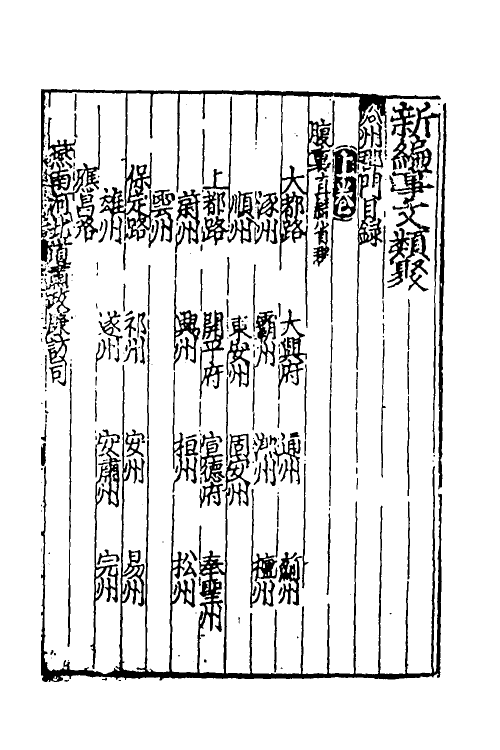 新編事文類聚
州郡門目錄
腹裏直隸省部
大都路 大興府 通州 薊州
涿州 霸州 漷州 檀州
順州 東安州 固安州
上都路 開平府 宣德府 奉聖州
蔚州 興州 桓州 松州
雲州
保定路 祁州 安州 易州
雄州 遂州 安肅州 完州
應昌路
燕南河北道肅政廉訪司